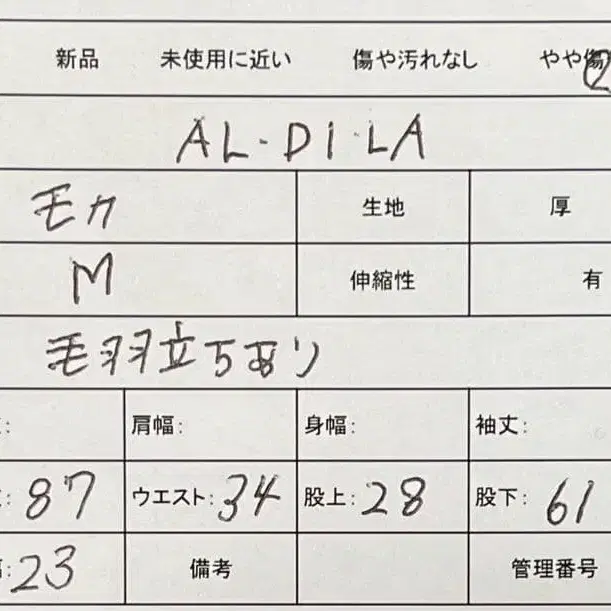 新品 未使用に近い 傷や汚れなし やや傷
AL・DI・LA
モカ 生地 厚
M 伸縮性 有
毛羽立ちあり
: 肩幅: 身幅: 袖丈:
: 87 ウエスト: 34 股上: 28 股下: 61
: 23 備考 管理番号